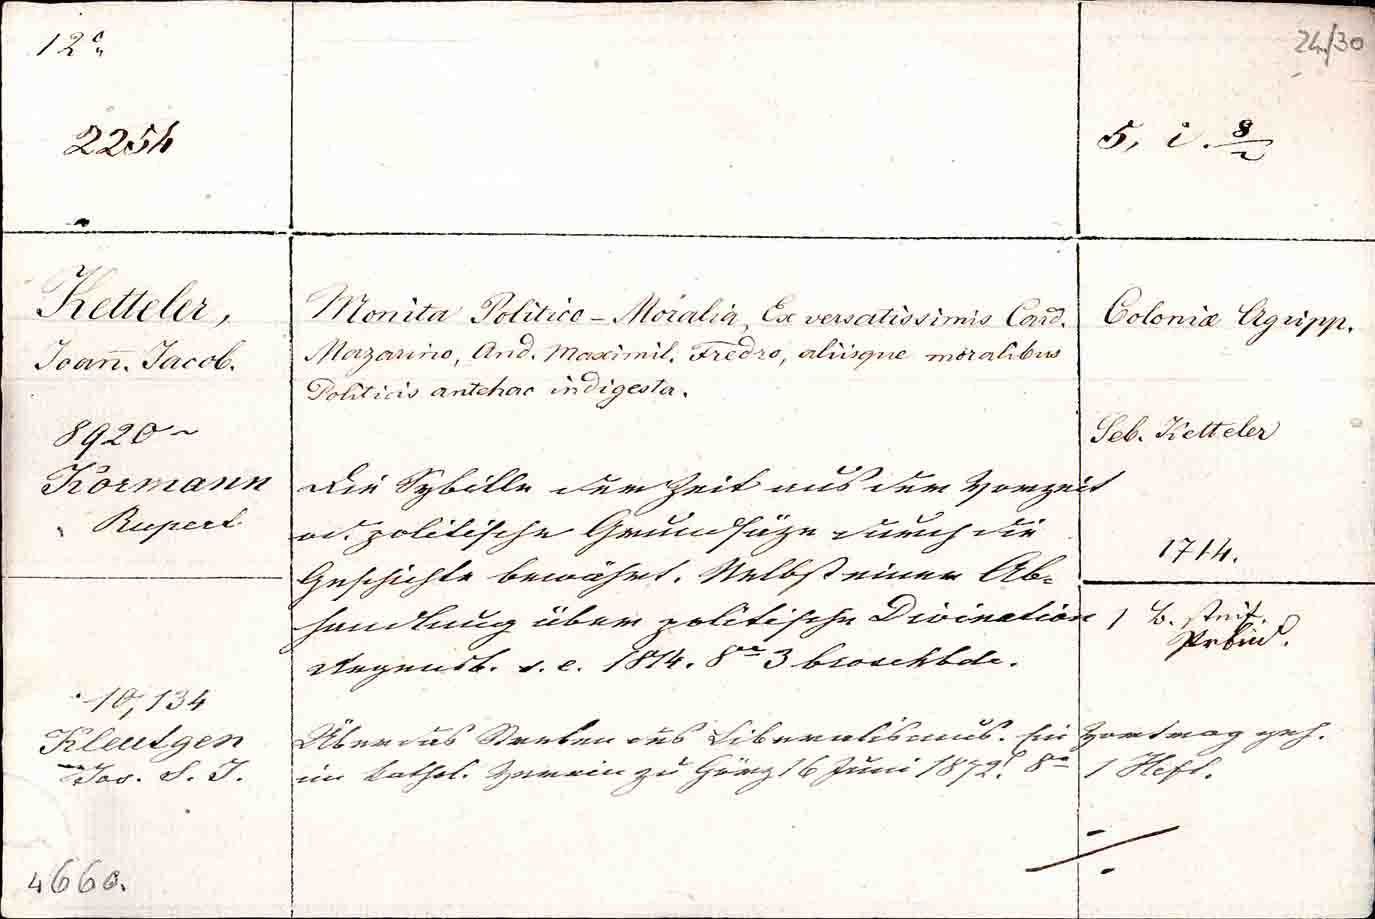 12°
24/30
2254
5, i. 8/2
Ketteler,
Joan̅. Jacob.
Monita Politico - Moralia, Ex versatissimis Card.
Mazarino, And. Maximil. Fredro, aliisque moralibus
Politicis antehac indigesta.
Coloniæ Agripp.
Seb. Ketteler
1714.
8920
Kormann
Rupert
Die Sybille der Zeit aus der Vorzeit
od. politische Grundsäze durch die
Geschichte bewährt. Nebst einer Ab-
handlung über politische Divination
Regensb. s. e. 1814. 8° 3 broschbde.
1 b. steif.
Prbd.
10,134
Kleutgen
Jos. S. J.
Über das Streben des Liberalismus. Ein Vortrag geh.
im kathol. Verein zu Görz 16 Juni 1872. 8° 1 Heft.
4660.